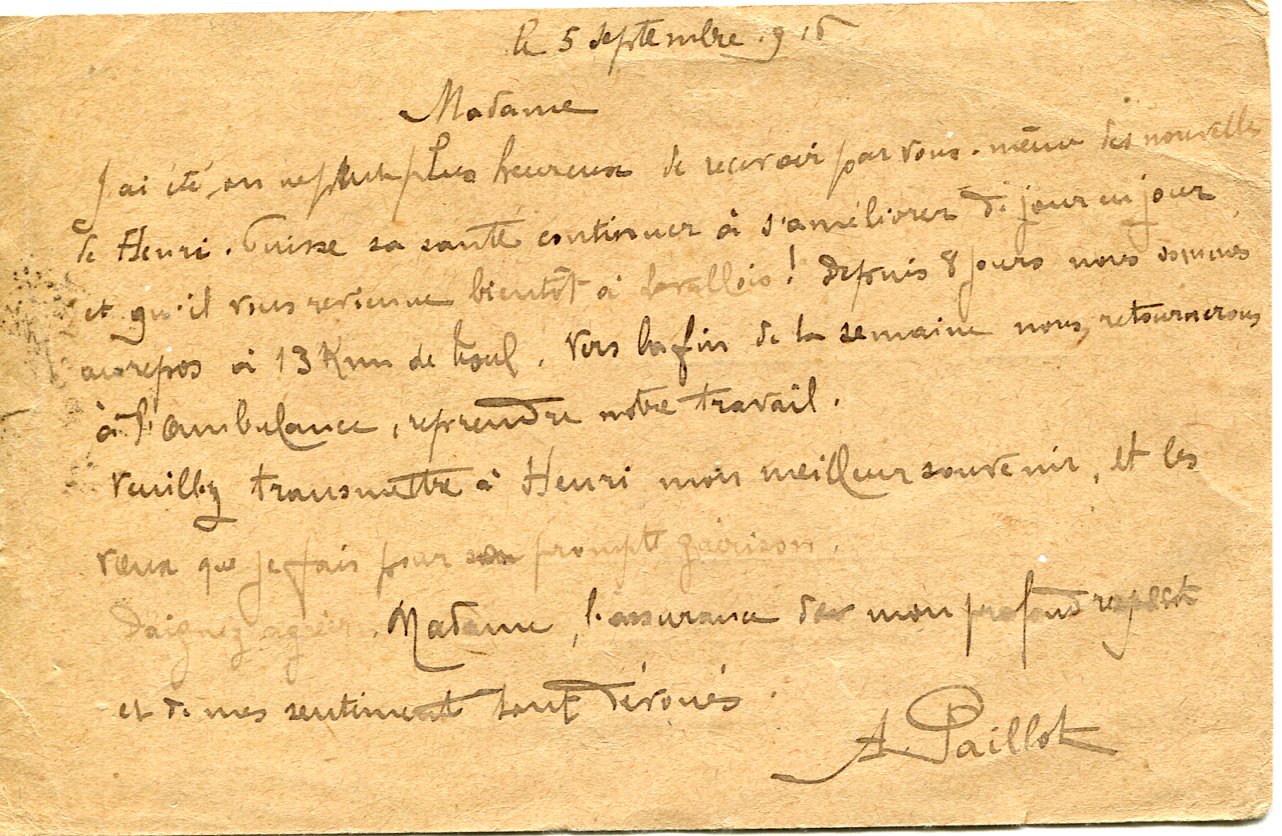 le 5 septembre . 9 16
Madame
J'ai été, on ne peut plus heureux de recevoir par vous-même des nouvelles
de Henri. Puisse sa santé continuer à s'améliorer de jour en jour
et qu'il vous revienne bientôt à Levallois! Depuis 8 jours nous sommes
au repos à 13 Km de Toul. Vers la fin de la semaine nous retournerons
à l'Ambulance, reprendre notre travail.
Veuillez transmettre à Henri mon meilleur souvenir, et les
vœux que je fais pour son prompte guérison.
Daignez agréer, Madame, l'assurance de mon profond respect
et de mes sentiments tout dévoués.
A. Paillot